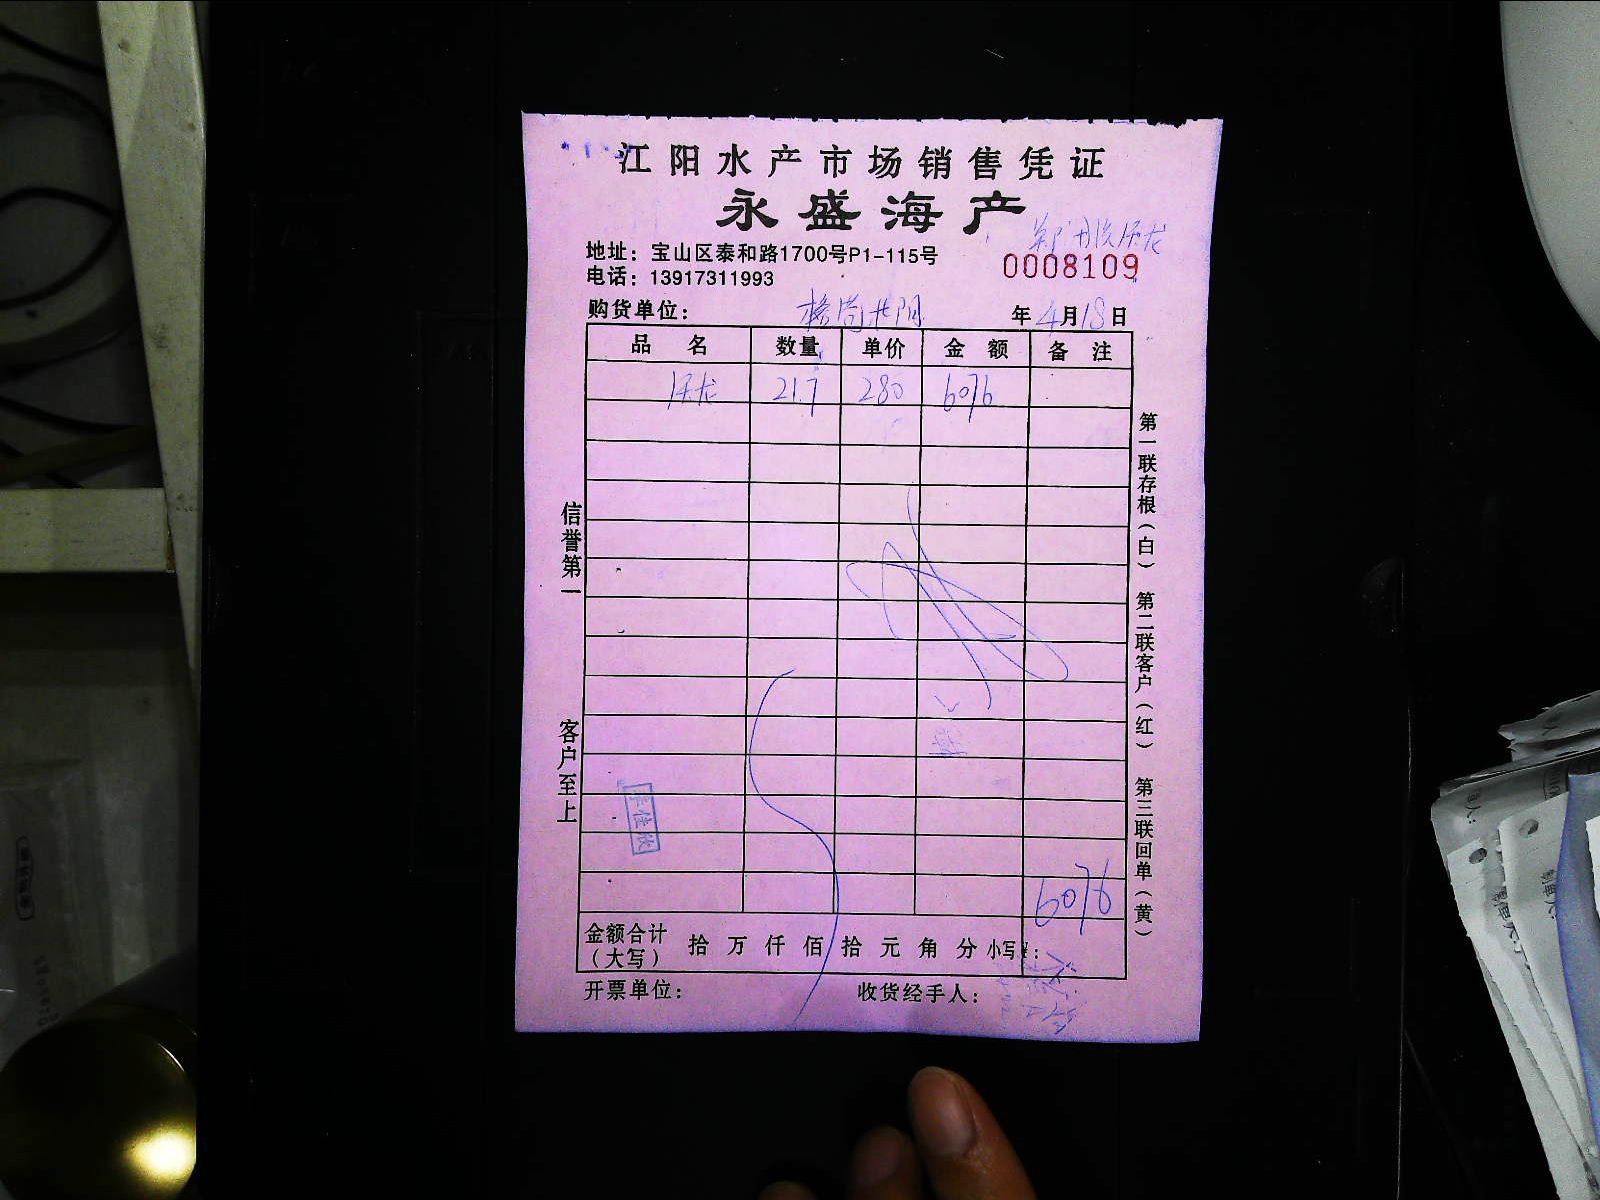 江阳水产市场销售凭证
永盛海产
地址：宝山区泰和路1700号P1-115号
0008109
电话：13917311993
购货单位： 年4月18日
品 名 数量 单价 金 额 备 注
龙 21.7 280 6076
信誉第一
客户至上
第一联存根（白） 第二联客户（红） 第三联回单（黄）
6076
金额合计（大写） 拾 万 仟 佰 拾 元 角 分 小写¥：
开票单位： 收货经手人：